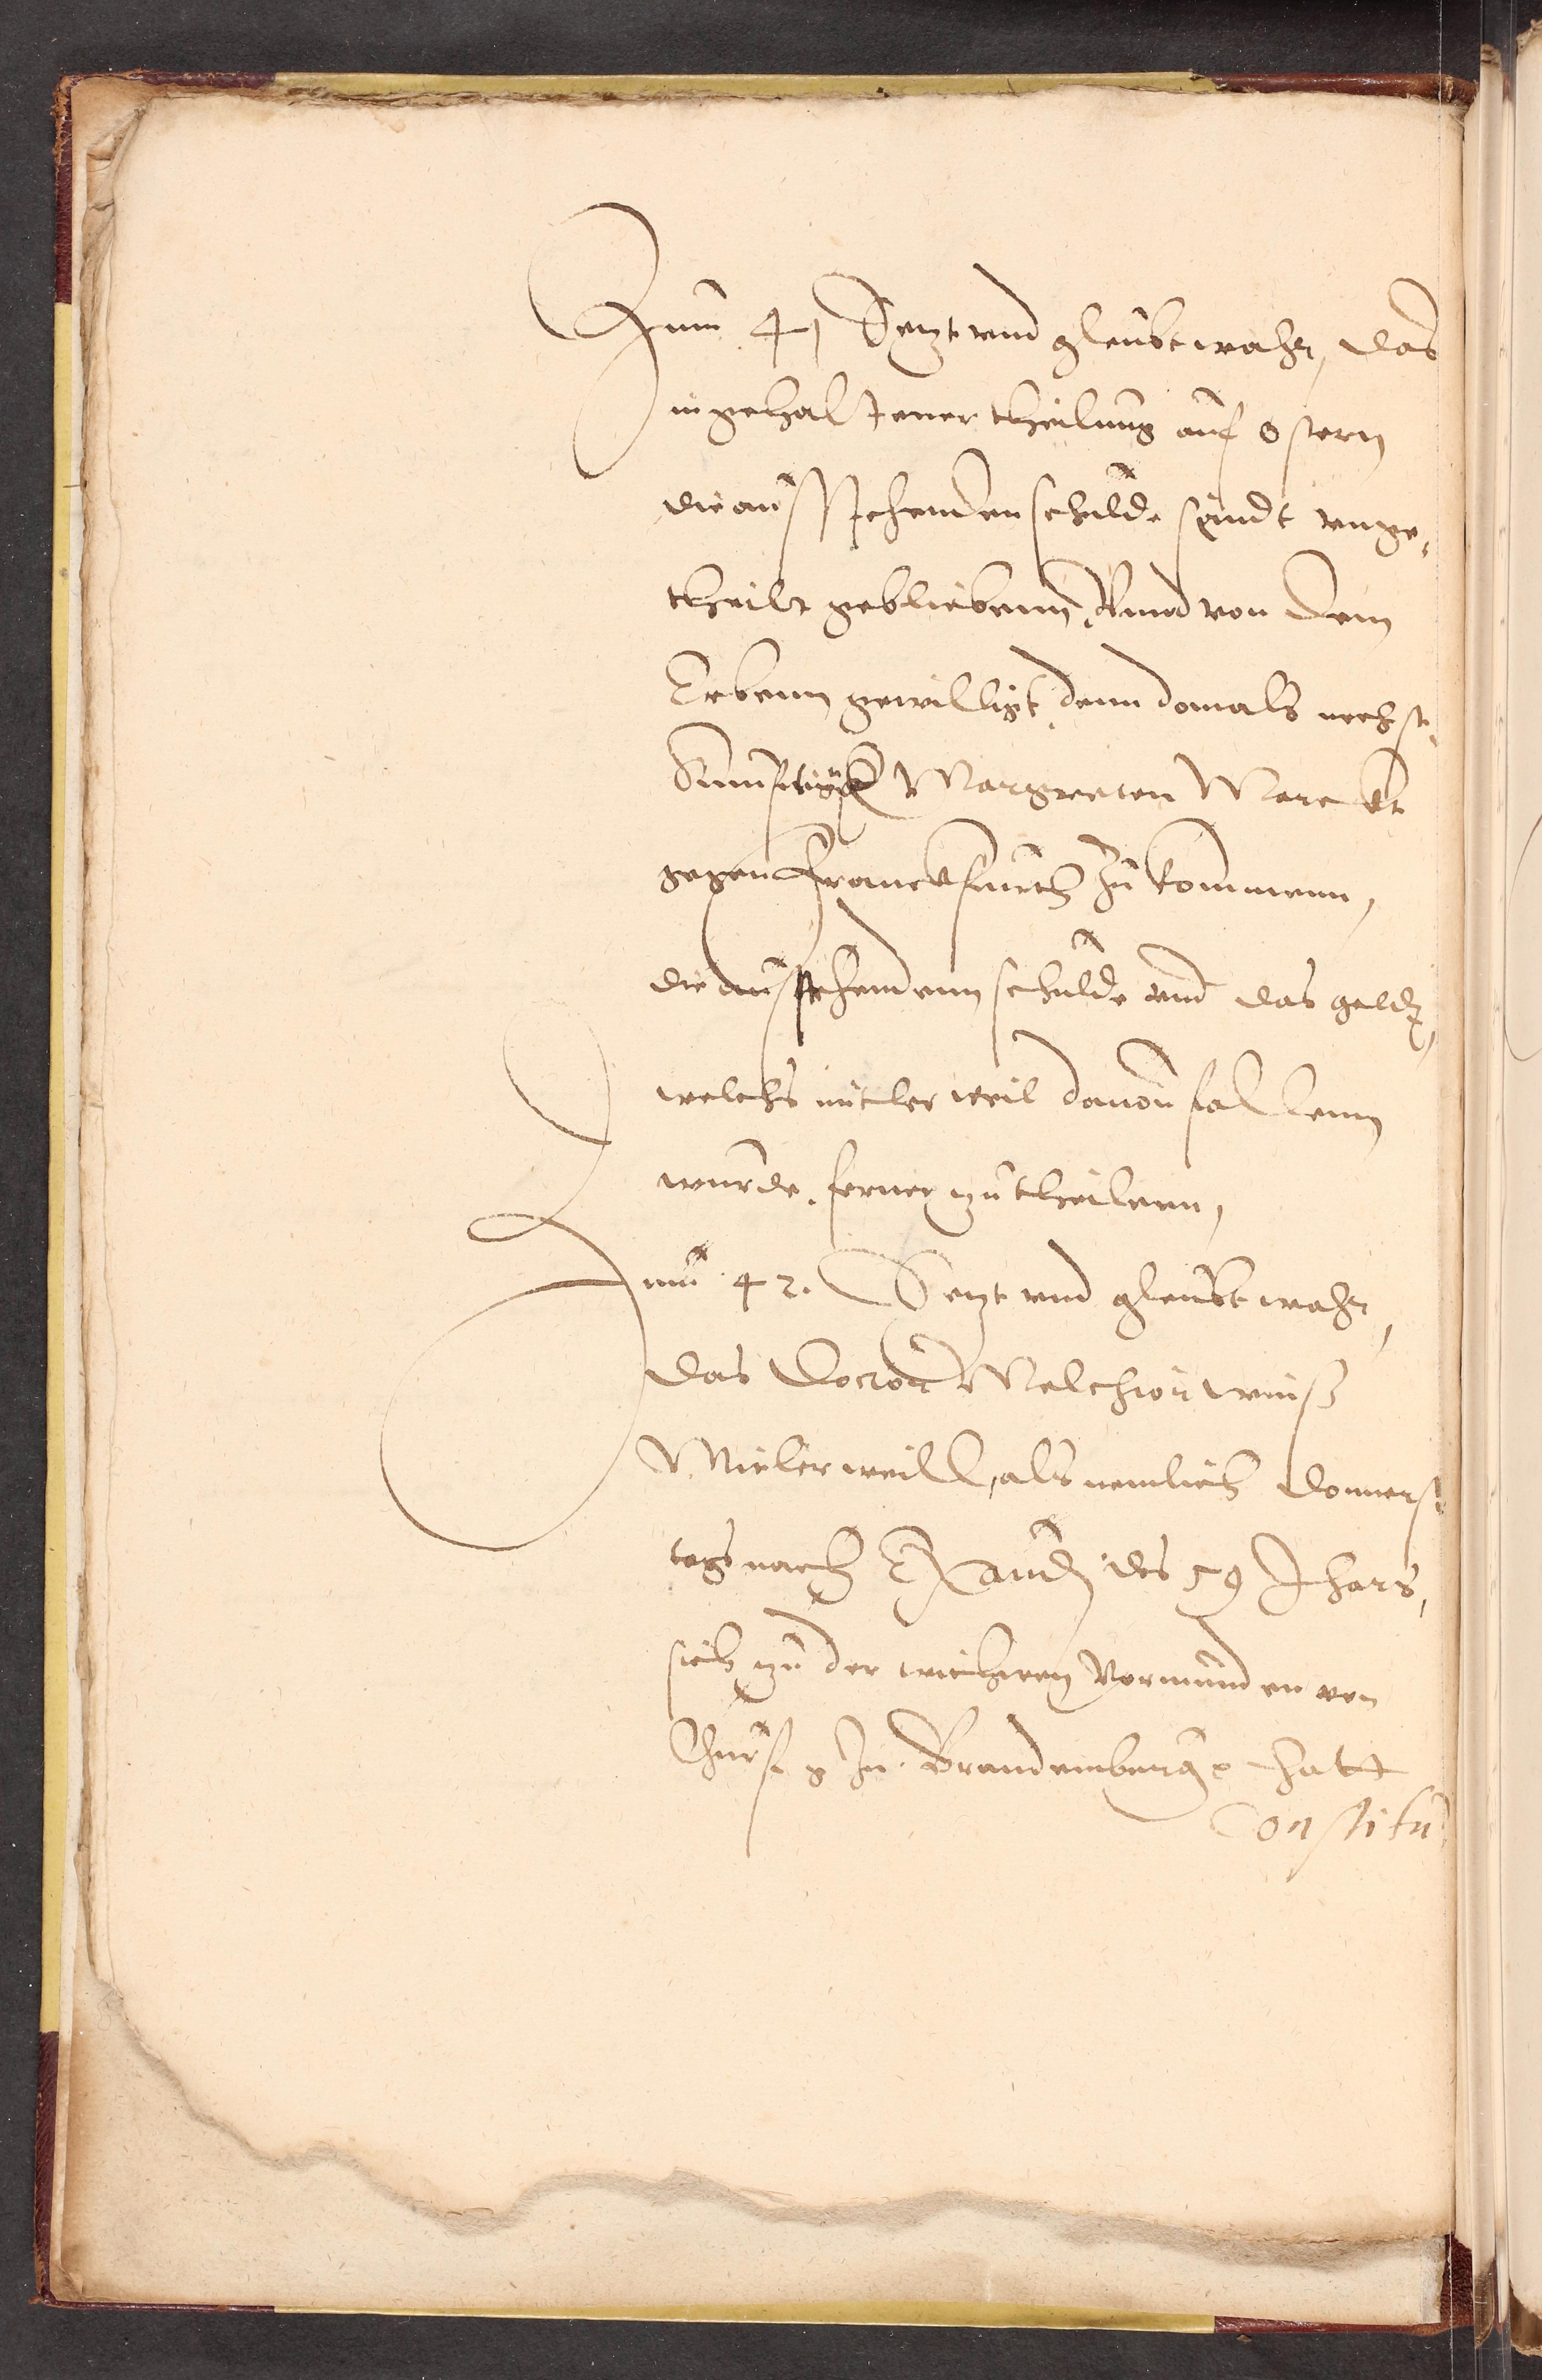 Zum 41 Setzt vnd gleubt wahr, das
in gehaltener theilung auf ostern
die ausstehenden schulde seindt vnge„
theilt gebliebenn, Vnnd von den
Erbenn gewilligt, denn domals nechst„
künfftigk Margreten Marckt
gegen Franckfurth zu kommenn,
die ausstehendenn schulde vnd das geldt,
welchs mitler weil dauon fallenn
wurde, ferner zu theilenn,
Zum 42. Setzt vnd gleubt wahr,
das Doctor Melchior wins
Mitlerweill, als nemlich donners„
tags nach Exaudi des 59 Jhars,
sich zu der Vormunden von
Churf g Zu Brandemburg hatt
Constitu